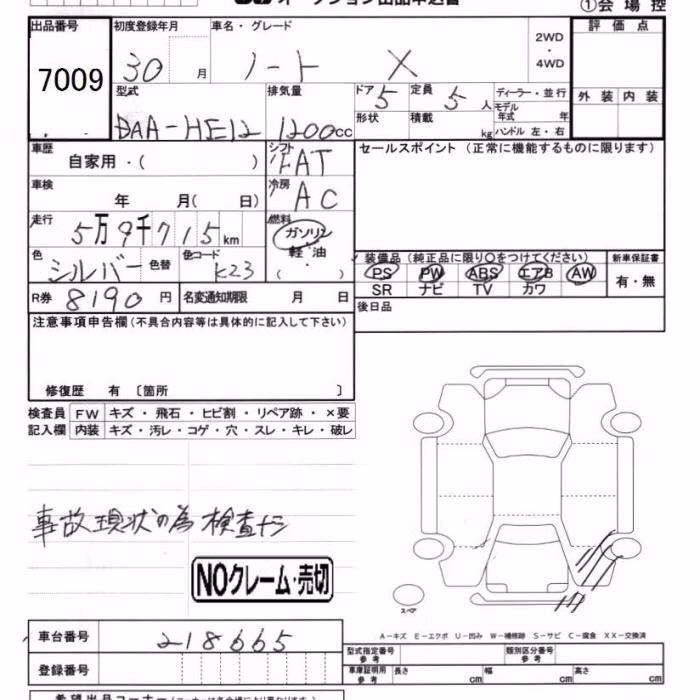 オークション出品申込書
①会場控
出品番号 初度登録年月 車名・グレード 評価点
7009 30 月 ノート X 2WD・4WD
型式 排気量 ドア 定員 ディーラー・並行 外装 内装
DAA-HE12 1200cc 5 5人 モデル年式 年
形状 積載 kg ハンドル 左・右
車歴 シフト セールスポイント(正常に機能するものに限ります)
自家用・( ) FAT
車検 冷房
年 月( 日) AC
走行 燃料
5万9千715km ガソリン
色 色替 色コード 軽・油 装備品(純正品に限り○をつけてください) 新車保証書
シルバー K23 ( ) PS PW ABS エアB AW 有・無
SR ナビ TV カワ
R券 8190円 名変通知期限 月 日 後日品
注意事項申告欄(不具合内容等は具体的に記入して下さい)
修復歴 有 〔箇所 〕
検査員 FW キズ・飛石・ヒビ割・リペア跡・×要
記入欄 内装 キズ・汚レ・コゲ・穴・スレ・キレ・破レ
事故現状の為検査ナシ
NOクレーム・売切
スペア
A-キズ E-エクボ U-凹み W-補修跡 S-サビ C-腐食 XX-交換済
車台番号 218665 型式指定番号 参考 類別区分番号 参考
登録番号 車庫証明用 参考 長さ cm 幅 cm 高さ cm
希望出品コーナー